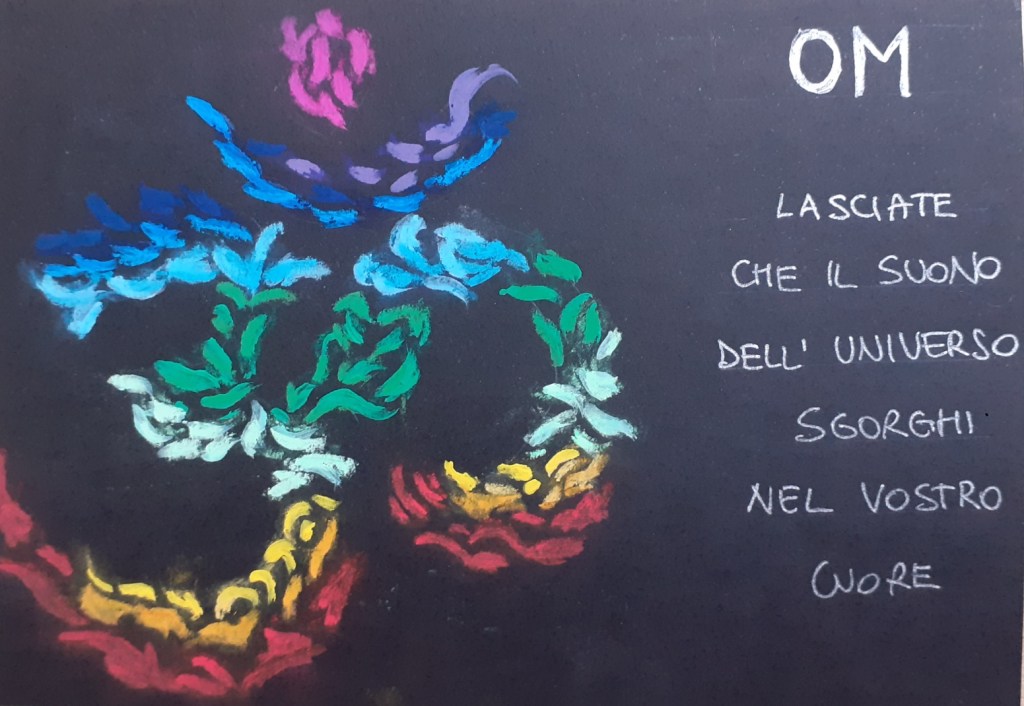 OM
LASCIATE
CHE IL SUONO
DELL' UNIVERSO
SGORGHI
NEL VOSTRO
CUORE